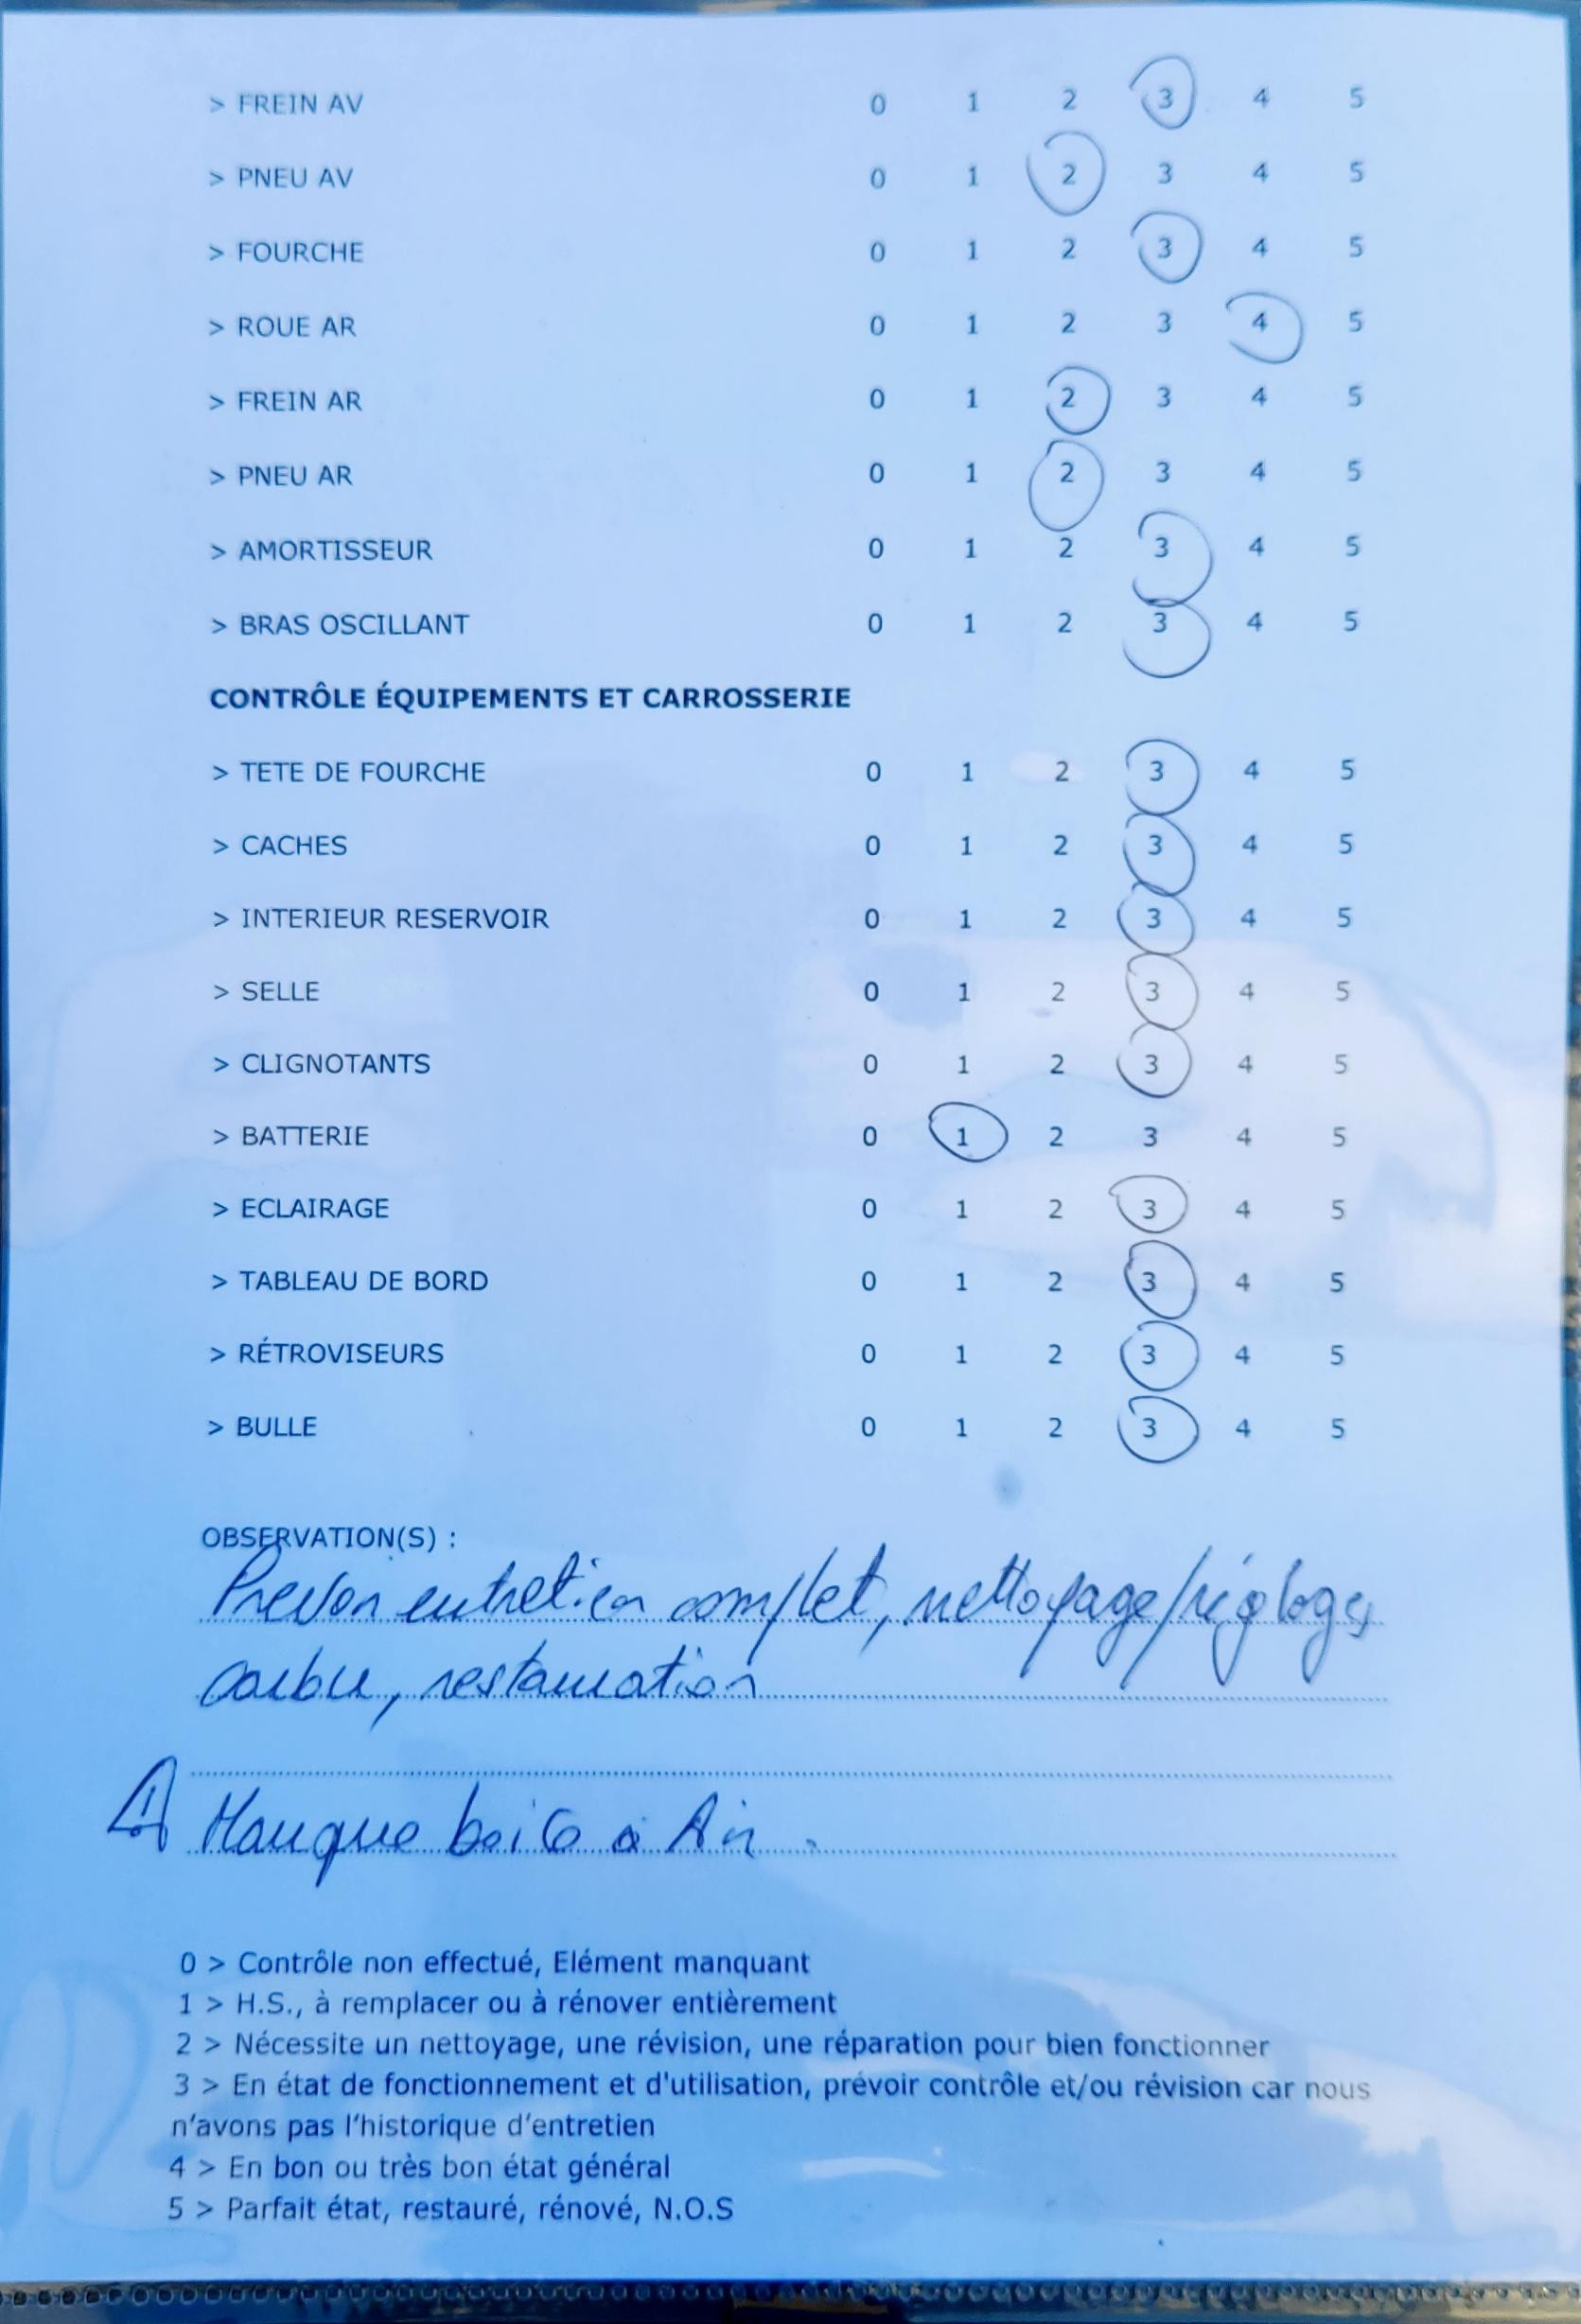 > FREIN AV 0 1 2 3 4 5
> PNEU AV 0 1 2 3 4 5
> FOURCHE 0 1 2 3 4 5
> ROUE AR 0 1 2 3 4 5
> FREIN AR 0 1 2 3 4 5
> PNEU AR 0 1 2 3 4 5
> AMORTISSEUR 0 1 2 3 4 5
> BRAS OSCILLANT 0 1 2 3 4 5
CONTRÔLE ÉQUIPEMENTS ET CARROSSERIE
> TETE DE FOURCHE 0 1 2 3 4 5
> CACHES 0 1 2 3 4 5
> INTERIEUR RESERVOIR 0 1 2 3 4 5
> SELLE 0 1 2 3 4 5
> CLIGNOTANTS 0 1 2 3 4 5
> BATTERIE 0 1 2 3 4 5
> ECLAIRAGE 0 1 2 3 4 5
> TABLEAU DE BORD 0 1 2 3 4 5
> RÉTROVISEURS 0 1 2 3 4 5
> BULLE 0 1 2 3 4 5
OBSERVATION(S) :
Prevoir entretien complet, nettoyage/réglages
carbu, restauration
! Manque boite à Air.
0 > Contrôle non effectué, Elément manquant
1 > H.S., à remplacer ou à rénover entièrement
2 > Nécessite un nettoyage, une révision, une réparation pour bien fonctionner
3 > En état de fonctionnement et d'utilisation, prévoir contrôle et/ou révision car nous
n'avons pas l'historique d'entretien
4 > En bon ou très bon état général
5 > Parfait état, restauré, rénové, N.O.S